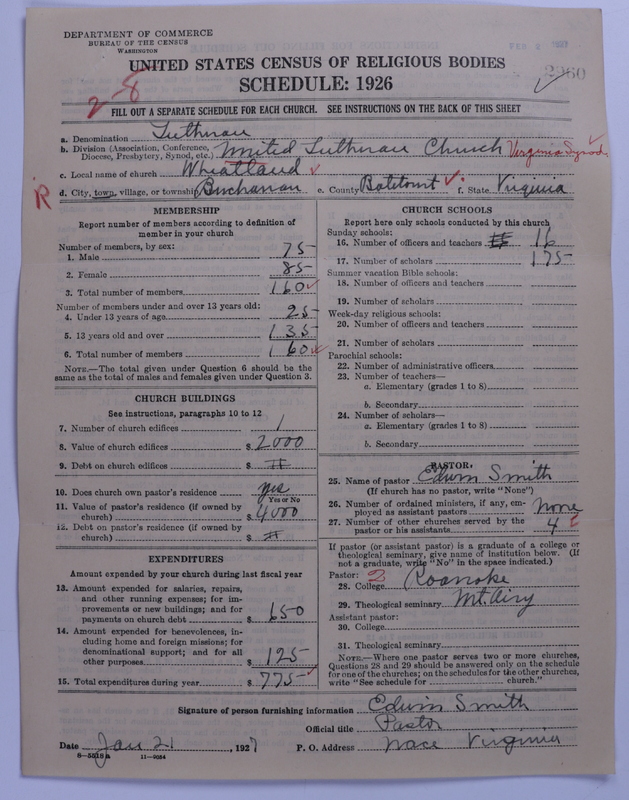 DEPARTMENT OF COMMERCE
BUREAU OF THE CENSUS
WASHINGTON
FEB 2 1927
2960
UNITED STATES CENSUS OF RELIGIOUS BODIES
SCHEDULE: 1926
2-8
FILL OUT A SEPARATE SCHEDULE FOR EACH CHURCH. SEE INSTRUCTIONS ON THE BACK OF THIS SHEET
a. Denomination Lutheran
b. Division (Association, Conference, Diocese, Presbytery, Synod, etc.) United Lutheran Church Virginia Synod
c. Local name of church Wheatland
R
d. City, town, village, or township Buchanan e. County Botetourt f. State Virginia
MEMBERSHIP
Report number of members according to definition of
member in your church
Number of members, by sex:
1. Male 75
2. Female 85
3. Total number of members 160
Number of members under and over 13 years old:
4. Under 13 years of age 25
5. 13 years old and over 135
6. Total number of members 160
NOTE.—The total given under Question 6 should be
same as the total of males and females given under Question 3.
CHURCH BUILDINGS
See instructions, paragraphs 10 to 12
7. Number of church edifices 1
8. Value of church edifices $ 2000
9. Debt on church edifices $
10. Does church own pastor's residence yes
Yes or No
11. Value of pastor's residence (if owned by
church) $ 4000
12. Debt on pastor's residence (if owned by
church) $
EXPENDITURES
Amount expended by your church during last fiscal year
13. Amount expended for salaries, repairs,
and other running expenses; for im-
provements or new buildings; and for
payments on church debt $ 650
14. Amount expended for benevolences, in-
cluding home and foreign missions; for
denominational support; and for all
other purposes $ 125
15. Total expenditures during year $ 775
CHURCH SCHOOLS
Report here only schools conducted by this church
Sunday schools:
16. Number of officers and teachers 16
17. Number of scholars 175
Summer vacation Bible schools:
18. Number of officers and teachers
19. Number of scholars
Week-day religious schools:
20. Number of officers and teachers
21. Number of scholars
Parochial schools:
22. Number of administrative officers
23. Number of teachers—
a. Elementary (grades 1 to 8)
b. Secondary
24. Number of scholars—
a. Elementary (grades 1 to 8)
b. Secondary
PASTOR
25. Name of pastor Edwin Smith
(If church has no pastor, write "None")
26. Number of ordained ministers, if any, em-
ployed as assistant pastors None
27. Number of other churches served by the
pastor or his assistants 4
If pastor (or assistant pastor) is a graduate of a college or
theological seminary, give name of institution below. (If
not a graduate, write "No" in the space indicated.)
Pastor: 2
28. College Roanoke
29. Theological seminary Mt. Airy
Assistant pastor:
30. College
31. Theological seminary
NOTE.—Where one pastor serves two or more churches,
Questions 28 and 29 should be answered only on the schedule
for one of the churches; on the schedules for the other churches,
write "See schedule for church."
Signature of person furnishing information Edwin Smith
Official title Pastor
Date Jan 21, 1927 P. O. Address Nace Virginia
8-5518a 11-9034